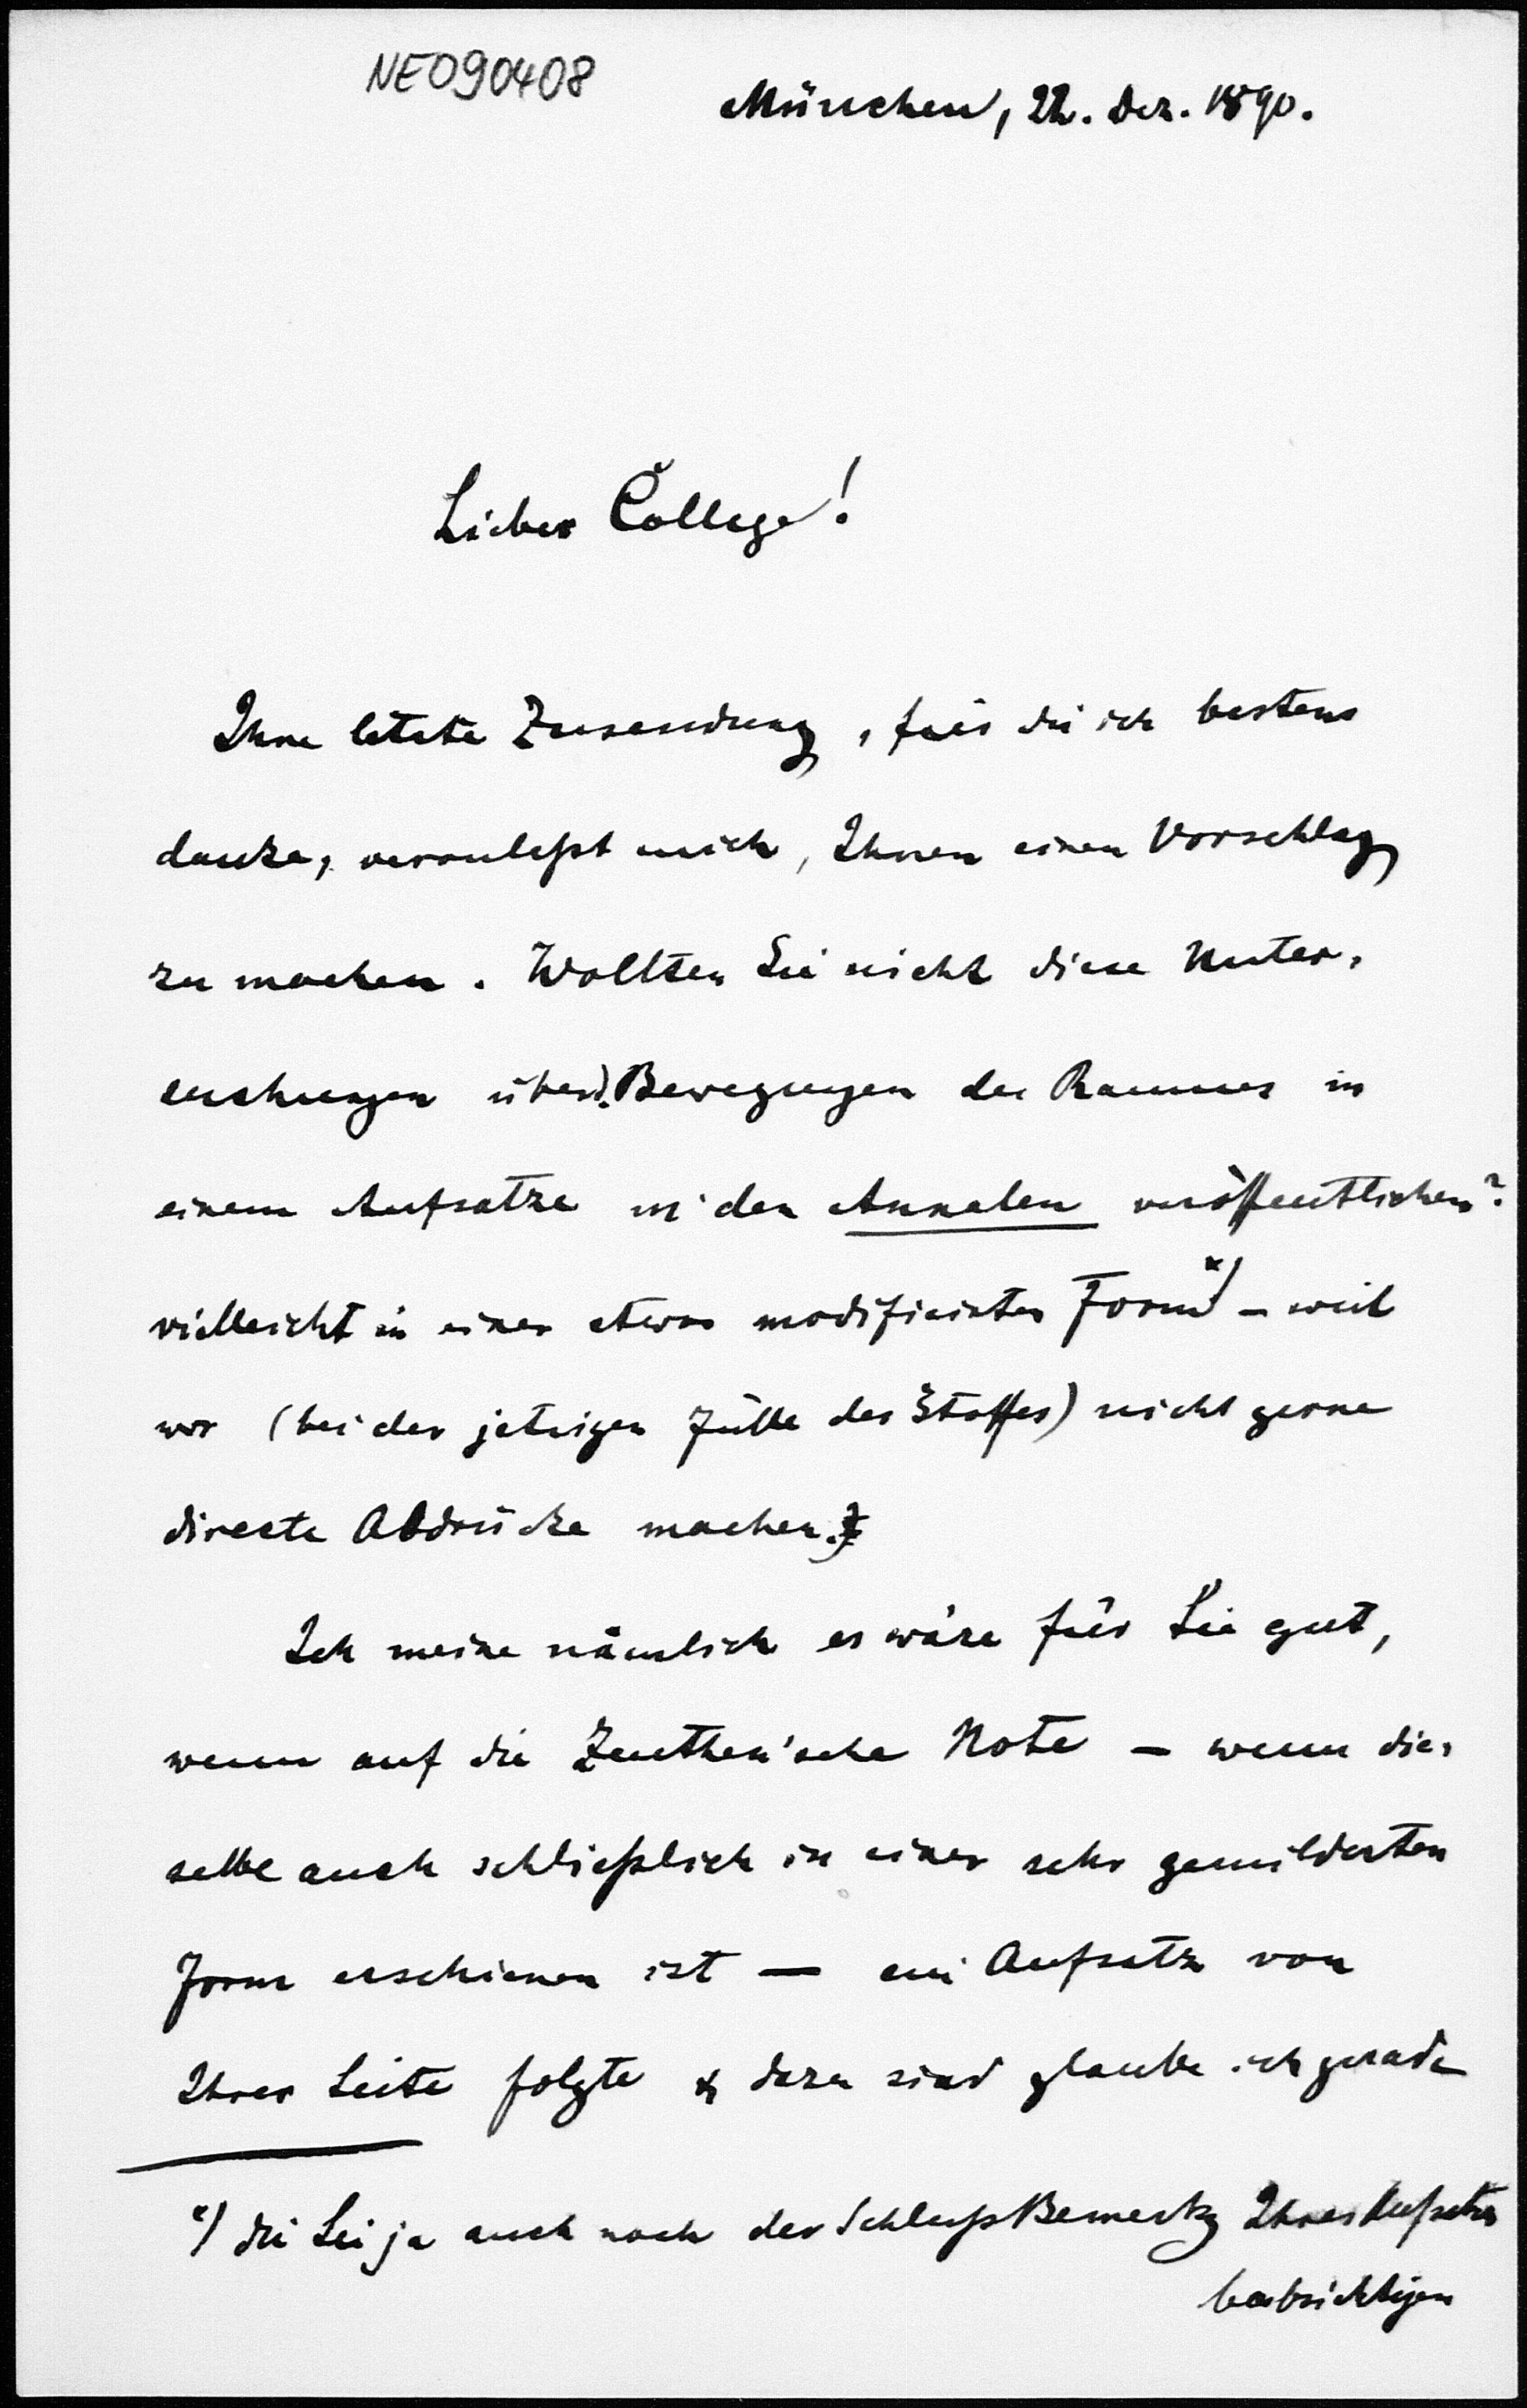 NE090408
München, 22. Dez. 1890.
Lieber College!
Ihre letzte Zusendung, für die ich bestens
danke, veranlaßt mich, Ihnen einen Vorschlag
zu machen. Wollten Sie nicht diese Unter-
suchungen über d. Bewegungen des Raumes in
einem Aufsatze in den Annalen veröffentlichen?
vielleicht in einer etwas modificirten Form *) – weil
wir (bei der jetzigen Fülle des Stoffes) nicht gerne
directe Abdrücke machen.
Ich meine nämlich es wäre für Sie gut,
wenn auf die Zeuthen'sche Note – wenn die-
selbe auch schließlich in einer sehr gemilderten
Form erschienen ist — ein Aufsatz von
Ihrer Seite folgte & dazu sind glaube ich gerade
*) die Sie ja auch nach der SchlußBemerkg Ihres Aufsatzes
beabsichtigen